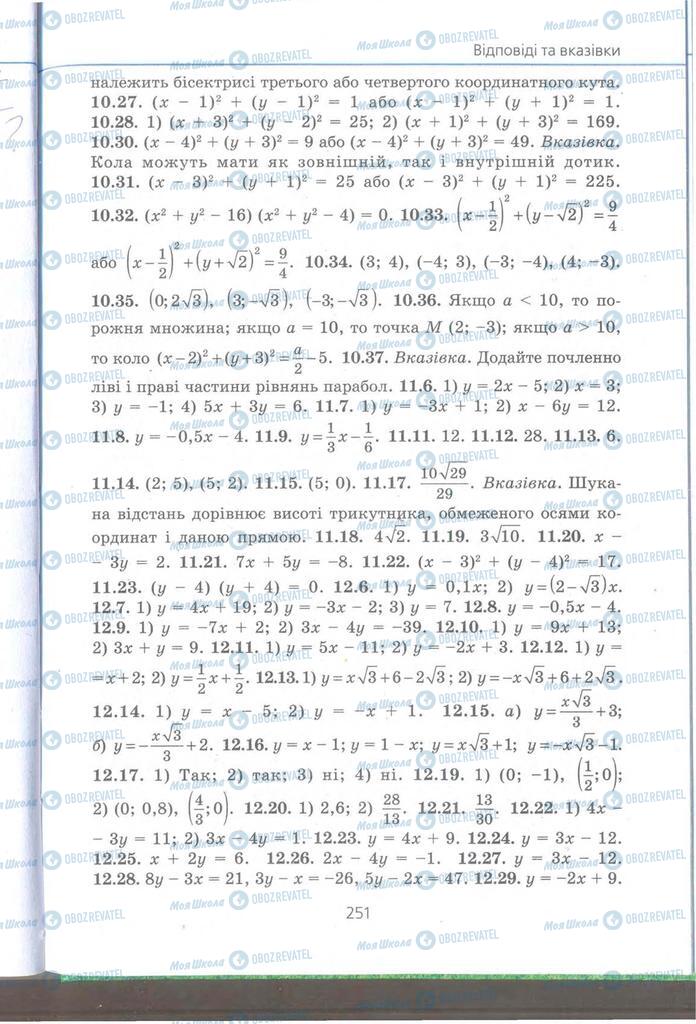 Відповіді та вказівки
належить бісектрисі третього або четвертого координатного кута.
10.27. (x − 1)² + (y − 1)² = 1 або (x − 1)² + (y + 1)² = 1.
10.28. 1) (x + 3)² + (y − 2)² = 25; 2) (x + 1)² + (y + 3)² = 169.
10.30. (x − 4)² + (y + 3)² = 9 або (x − 4)² + (y + 3)² = 49. Вказівка.
Кола можуть мати як зовнішній, так і внутрішній дотик.
10.31. (x − 3)² + (y + 1)² = 25 або (x − 3)² + (y + 1)² = 225.
10.32. (x² + y² − 16) (x² + y² − 4) = 0. 10.33. (x − 1/2)² + (y − √2)² = 9/4
або (x − 1/2)² + (y + √2)² = 9/4. 10.34. (3; 4), (−4; 3), (−3; −4), (4; −3).
10.35. (0; 2√3), (3; −√3), (−3; −√3). 10.36. Якщо a < 10, то по-
рожня множина; якщо a = 10, то точка M (2; −3); якщо a > 10,
то коло (x − 2)² + (y + 3)² = a/2 − 5. 10.37. Вказівка. Додайте почленно
ліві і праві частини рівнянь парабол. 11.6. 1) y = 2x − 5; 2) x = 3;
3) y = −1; 4) 5x + 3y = 6. 11.7. 1) y = −3x + 1; 2) x − 6y = 12.
11.8. y = −0,5x − 4. 11.9. y = 1/3 x − 1/6. 11.11. 12. 11.12. 28. 11.13. 6.
11.14. (2; 5), (5; 2). 11.15. (5; 0). 11.17. 10√29/29. Вказівка. Шука-
на відстань дорівнює висоті трикутника, обмеженого осями ко-
ординат і даною прямою. 11.18. 4√2. 11.19. 3√10. 11.20. x −
− 3y = 2. 11.21. 7x + 5y = −8. 11.22. (x − 3)² + (y − 4)² = 17.
11.23. (y − 4) (y + 4) = 0. 12.6. 1) y = 0,1x; 2) y = (2 − √3)x.
12.7. 1) y = 4x + 19; 2) y = −3x − 2; 3) y = 7. 12.8. y = −0,5x − 4.
12.9. 1) y = −7x + 2; 2) 3x − 4y = −39. 12.10. 1) y = 9x + 13;
2) 3x + y = 9. 12.11. 1) y = 5x − 11; 2) y = −2x + 3. 12.12. 1) y =
= x + 2; 2) y = 1/2 x + 1/2. 12.13. 1) y = x√3 + 6 − 2√3; 2) y = −x√3 + 6 + 2√3.
12.14. 1) y = x − 5; 2) y = −x + 1. 12.15. а) y = x√3/3 + 3;
б) y = − x√3/3 + 2. 12.16. y = x − 1; y = 1 − x; y = x√3 + 1; y = −x√3 − 1.
12.17. 1) Так; 2) так; 3) ні; 4) ні. 12.19. 1) (0; −1), (1/2; 0);
2) (0; 0,8), (4/3; 0). 12.20. 1) 2,6; 2) 28/13. 12.21. 13/30. 12.22. 1) 4x −
− 3y = 11; 2) 3x − 4y = 1. 12.23. y = 4x + 9. 12.24. y = 3x − 12.
12.25. x + 2y = 6. 12.26. 2x − 4y = −1. 12.27. y = 3x − 12.
12.28. 8y − 3x = 21, 3y − x = −26, 5y − 2x = 47. 12.29. y = −2x + 9.
251